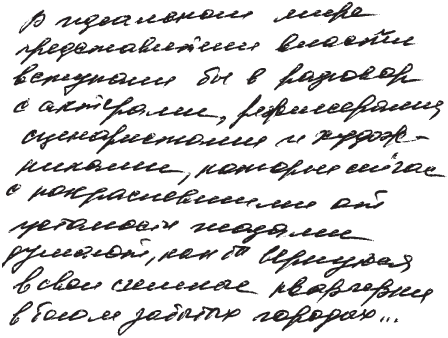 В идеальном мире
представители власти
вступали бы в разговор
с актёрами, режиссерами,
сценаристами и худож-
никами, которые сейчас
с покрасневшими от
усталости глазами
думают, как бы вернуться
в свои съемные квартирки
в богом забытых городах...